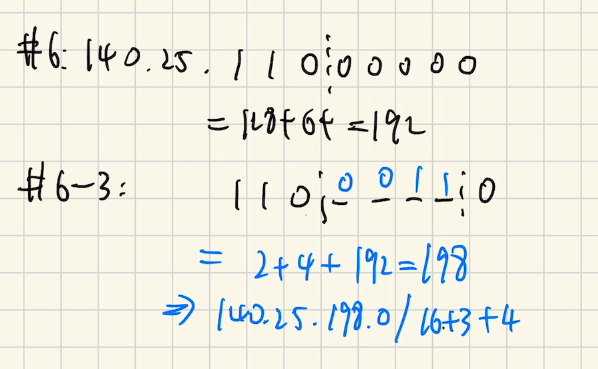 #6: 140.25. 1 1 0 ¦ 0 0 0 0 0
= 128+64 = 192
#6-3: 1 1 0 ¦ 0 0 1 1 ¦ 0
= 2+4+192=198
⇒ 140.25.198.0/16+3+4